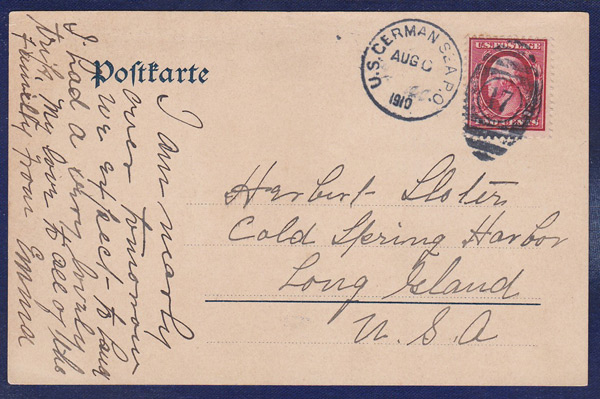 Postkarte
U.S. GERMAN SEA P.O.
AUG
1910
U.S. POSTAGE
17
I am nearly
over tomorrow
we expect to land
I had a very lovely
trip. My love to all of the
family from Emma
Herbert
Cold Spring Harbor
Long Island
U.S.A